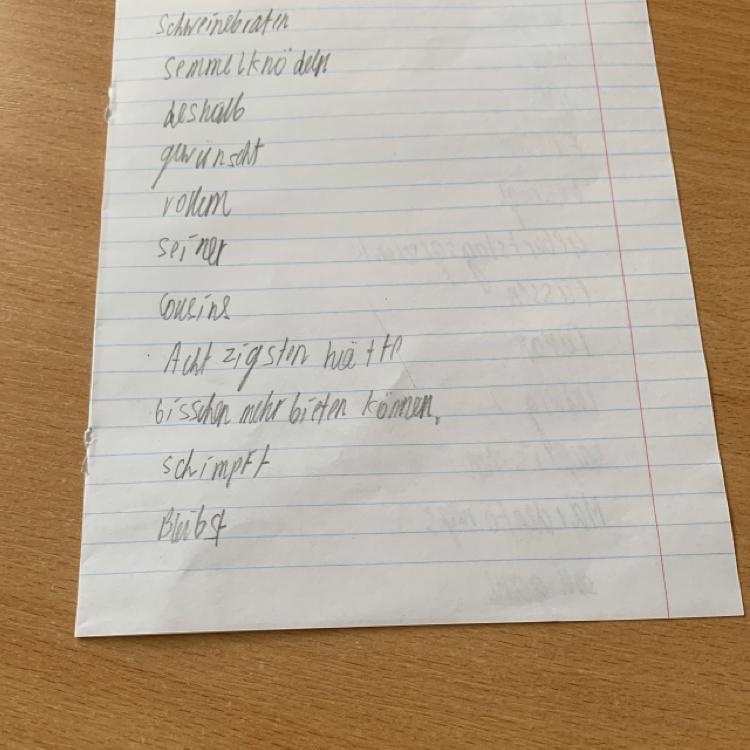 Schweinebraten
Semmelknödeln
deshalb
gewünscht
vollem
seiner
Cousins
Achtzigsten hätte
bisschen mehr bieten können.
schimpft
Bleibst